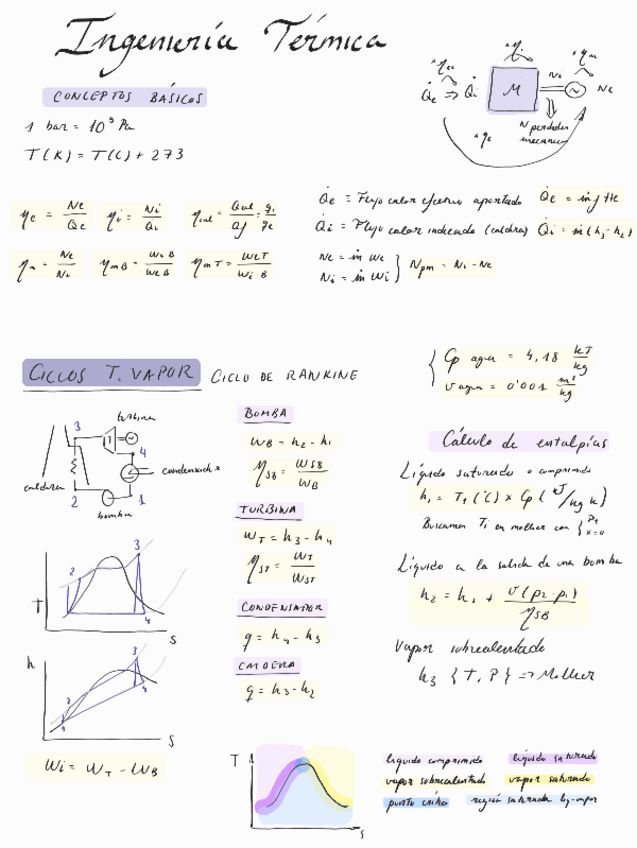 Ingeniería Térmica
CONCEPTOS BÁSICOS
1 bar = 10⁵ Pa
T(K) = T(C) + 273
Q̇e => Q̇i
M
Ni
Ne
N perdidas
mecánicas
ηe = Ne/Qe ηi = Ni/Qi
ηm = Ne/Ni ηmB = WiB/WeB ηmT = WeT/Wi B
Q̇e = Flujo calor efectivo aportado Q̇e = ṁf He
Q̇i = Flujo calor indicado (caldera) Q̇i = ṁ(h3 - h2)
Ne = ṁ We
Ni = ṁ Wi } Npm = Ni - Ne
CICLOS T. VAPOR CICLO DE RANKINE
{ Cp agua = 4,18
v agua = 0'001 m³/kg
turbina
3
4
condensador
caldera
2
1
bomba
T
2
3
1
4
S
h
2
3
1
4
S
Wi = WT - WB
BOMBA
WB = h2 - h1
ηSB = WSB/WB
TURBINA
WT = h3 - h4
ηST = WT/WST
CONDENSADOR
CALDERA
q = h3 - h2
Cálculo de entalpías
Líquido saturado o comprimido
h1 = T1(C) x Cp
Líquido a la salida de una bomba
h2 = h1 + v(p2 - p1)/ηSB
Vapor sobrecalentado
h3 { T, P } => Mollier
T
S
líquido comprimido líquido saturado
vapor sobrecalentado vapor saturado
punto crítico región saturada líq-vapor